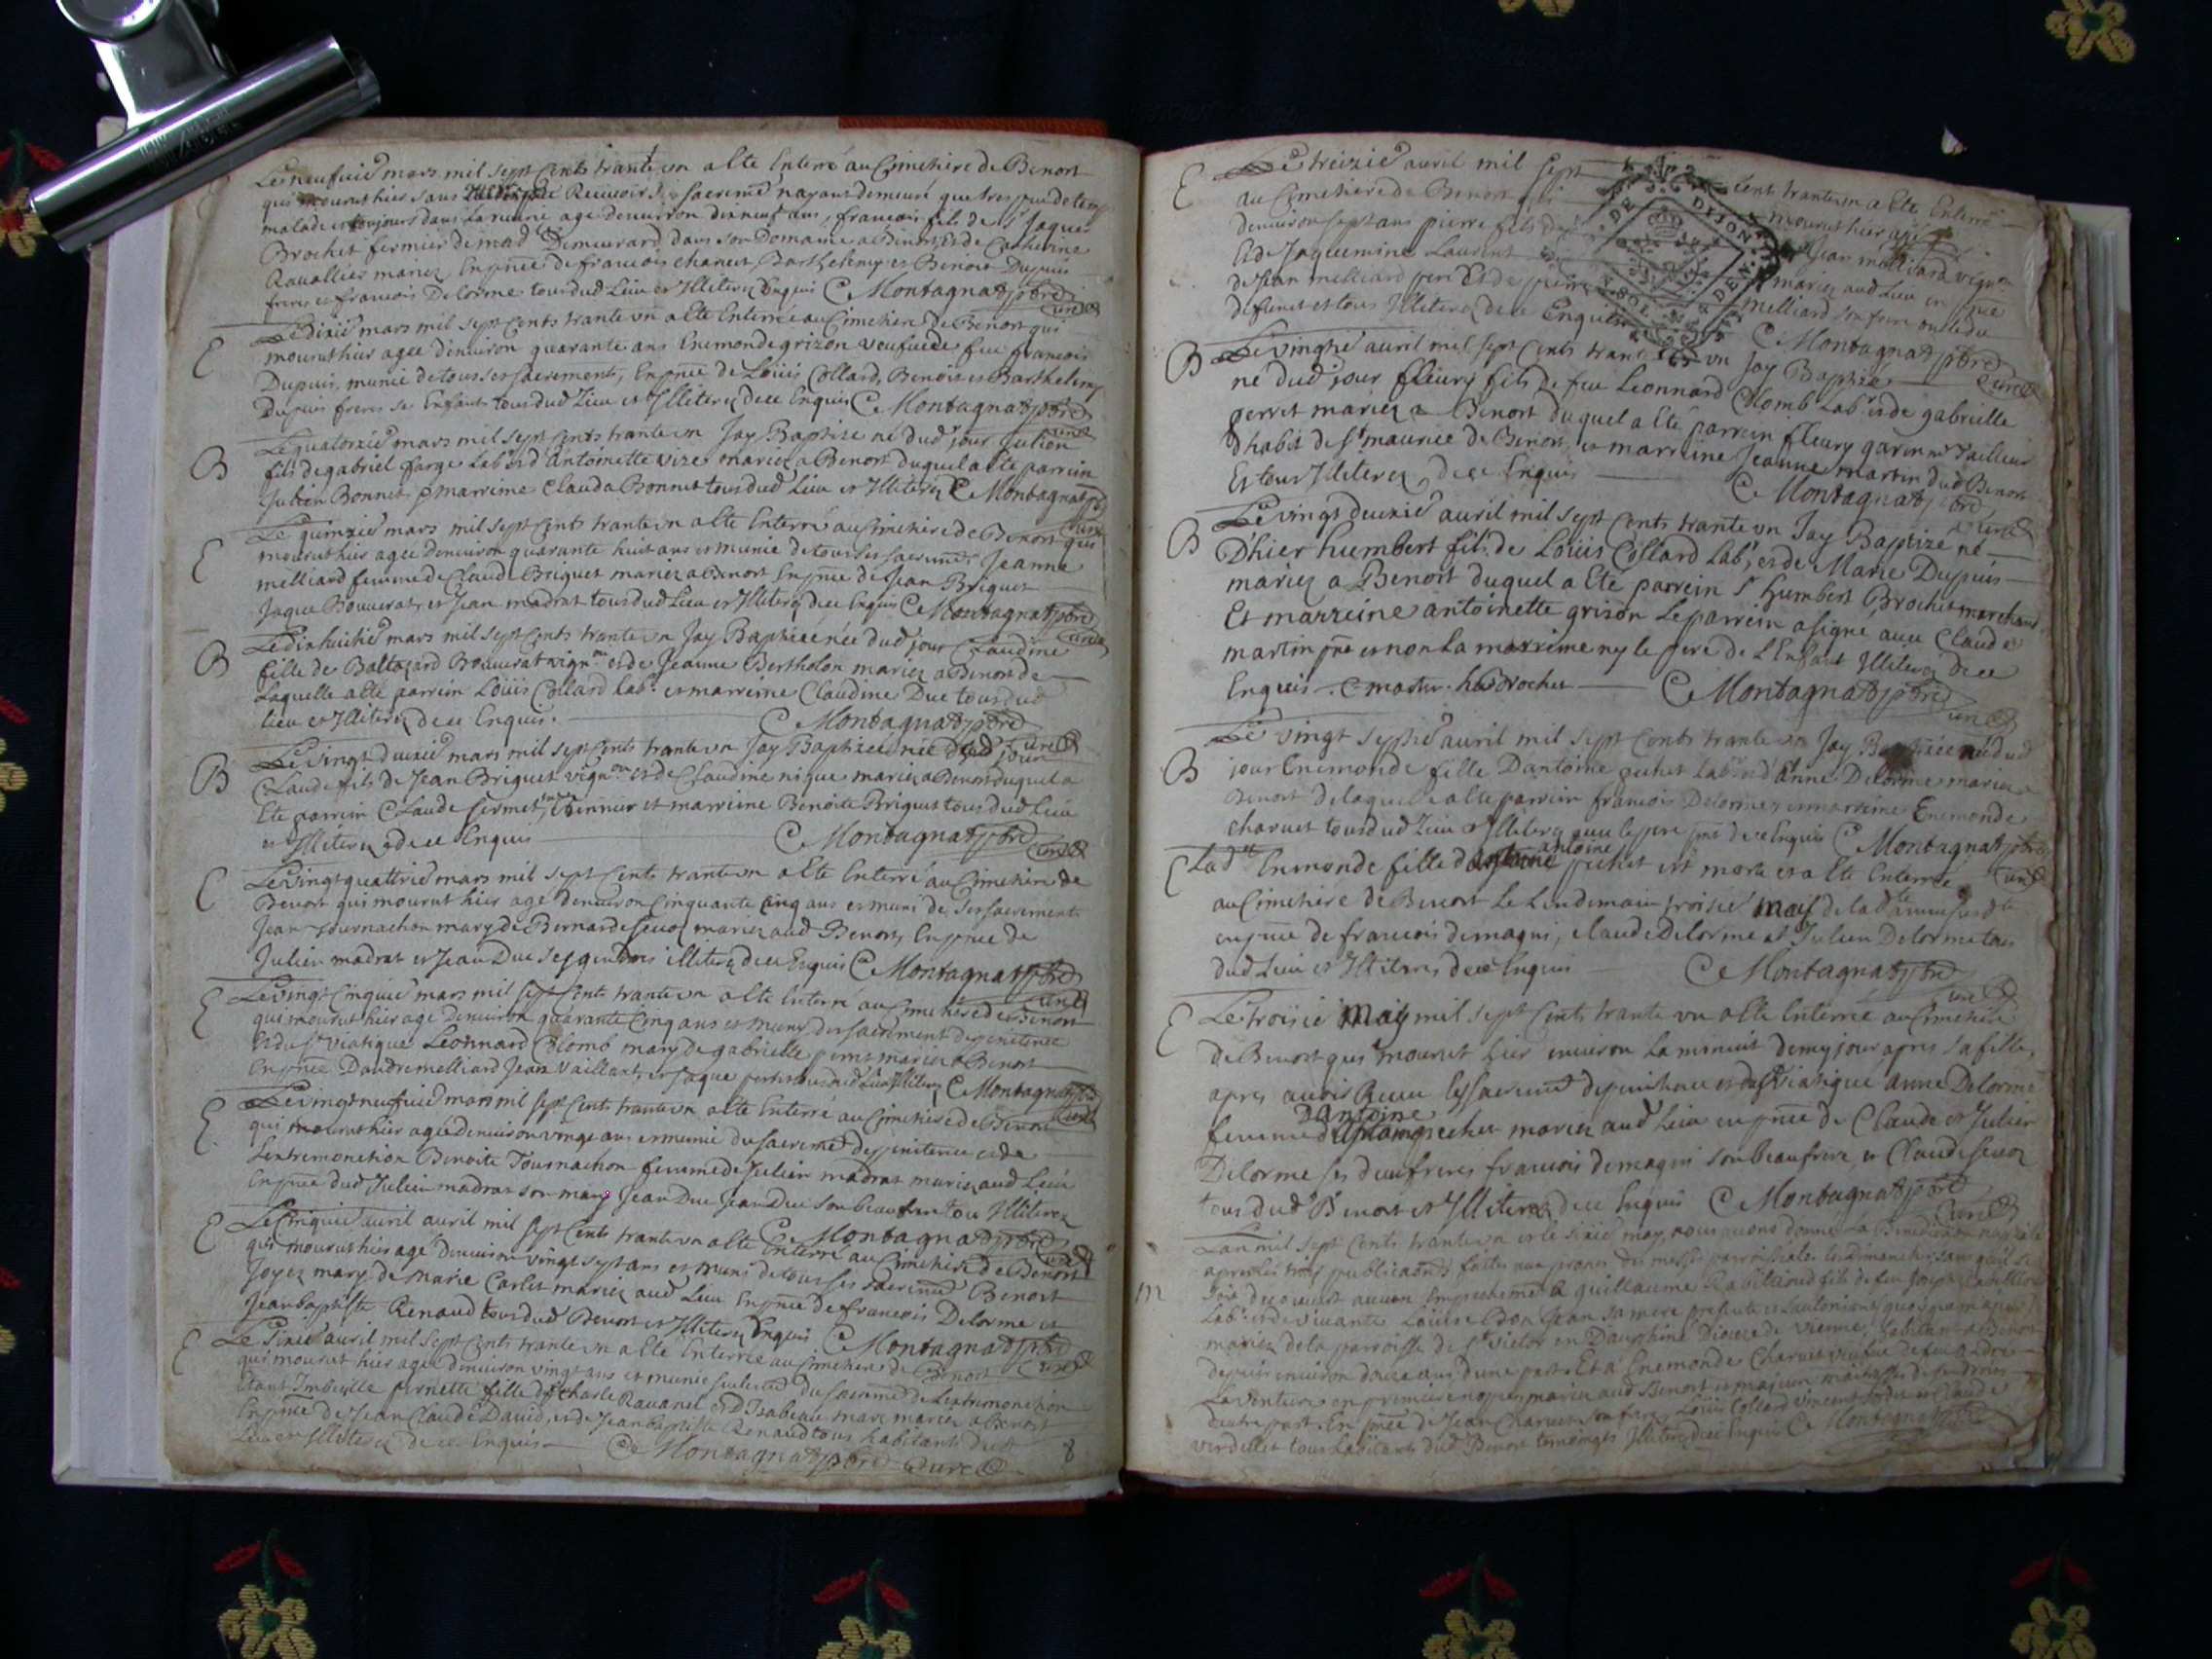 Le neufuie mars mil sept cents trante un a Ete Enterré au Cimetiere de Benost
qui mourut hier sans Recevoir ses sacremts nayant demeuré que tres peu de temps
malade age denuiron dixneuf ans, francois fils de Sr Jaque
Brochet fermier de mad Demeurard dans son Domaine a Benost et de Catherine
Rauallier mariez Enpnce de francois charuet, Barthelemy et Benoit Dupuis
freres et francois Delorme tous dud Lieu et Illiterez Enquis C Montagnat ptre
curé
E Le dixie mars mil sept Cents trante un a Ete Enterrée au Cimetiere de Benost qui
mourut hier agee denuiron quarante ans Enemonde grizon veufue de feu francois
Dupuis, munie de tous ses sacrements, Enpnce de Loüis Collard, Benoit et Barthelemy
Dupuis freres ses Enfants tous dud Lieu et Illiterez de ce Enquis C Montagnat ptre
curé
B Le quatorzie mars mil sept cents trante un Jay Baptize né dud jour Julien
fils de gabriel farge Labr et d'antoinette vize mariez a Benost duquel a Ete parrein
Julien Bonnet et marreine Clauda Bonnet tous dud Lieu et Illiterez C Montagnat ptre
curé
E Le quinzie mars mil sept cents trante un a Ete Enterré au Cimetiere de Benost qui
mourut hier agee denuiron quarante huit ans et munie de tous ses sacremts Jeanne
melliard femme de Claude Briquet mariez a Benost Enpnce de Jean Briquet
Jaque Bouuerat, et Jean madrat tous dud Lieu et Illiterez de ce Enquis C Montagnat ptre
curé
B Le dixhuitie mars mil sept cents trante un Jay Baptizée née dud jour Claudine
fille de Baltazard Bouuerat vignon et de Jeanne Bertholon mariez a Benost de
Laquelle a Ete parrein Loüis Collard labr et marreine Claudine Duc tous dud
lieu et Illiterez de ce Enquis. C Montagnat ptre
curé
B Le vingt deuxie mars mil sept cents trante un Jay Baptizé né dud jour
Claude fils de Jean Briquet vignon et de Claudine nique mariez a Benost duquel a
Ete parrein Claude sermet et marreine Benoite Briquet tous dud Lieu
et Illiterez de ce Enquis C Montagnat ptre
curé
E Le vingt quattrie mars mil sept Cents trante un a Ete Enterré au Cimetiere de
Benost qui mourut hier age denuiron Cinquante Cinq ans et muni de ses sacrements
Jean Tournachon mary de Bernarde seuoz mariez aud Benost, Enpnce de
Julien madrat et Jean Duc ses gendres illiterez de ce Enquis C Montagnat ptre
curé
E Le vingt Cinquie mars mil sept Cents trante un a Ete Enterré au Cimetiere de Benost
qui mourut hier age denuiron quarante Cinq ans et muny du sacrement de penitence
et du St viatique Leonnard Colomb mary de gabrielle perret mariez a Benost
Enpnce Dandre melliard Jean Vaillant, et Jaque tous dud Lieu Illiterez C Montagnat ptre
curé
E Le vingt neufuie mars mil sept Cents trante un a Ete Enterré au Cimetiere de Benost
qui mourut hier agee denuiron vingt ans et munie du sacremt de penitence et de
Lextremonction Benoite Tournachon femme de Julien madrat mariez aud Lieu
Enpnce dud Julien madrat son mary Jean Duc Jean Duc son beaufrere tous Illiterez
C Montagnat ptre
curé
E Le Cinquie auril auril mil sept Cents trante un a Ete Enterré au Cimetiere de Benost
qui mourut hier agé denuiron vingt sept ans et muni de tous ses sacremts Benost
Joyez mary de Marie Carlet mariez aud Lieu Enpnce de francois Delorme et
Jean baptiste Renaud tous dud Benost et Illiterez Enquis C Montagnat ptre
curé
E Le Sixie auril mil sept Cents trante un a Ete Enterrée au Cimetiere de Benost
qui mourut hier agee denuiron vingt ans et munie seulemt du sacremt de Lextremonction
Etant Imbecille pernette fille de Charle Rauanel et d'Isabeau marc mariez a Benost
Enpnce de Jean Claude Dauid, et de Jean baptiste Renaud tous habitants dud
Lieu et Illiterez de ce Enquis C Montagnat ptre curé
8
E Le treizie auril mil sept Cent trante un a Ete Enterré
au Cimetiere de Benost mourut hier agé
denuiron sept ans pierre fils de Jean melliard vignon
Et de Jaquemine Laurent mariez aud Lieu en pnce
de Jean melliard pere Et de pierre melliard son frere oncle du
defunct et tous Illiterez de ce Enquis C Montagnat ptre
curé
DE DIJON
B Le vingtie auril mil sept Cents trante un Jay Baptizé
né dud jour fleury fils de feu Leonnard Colomb Labr et de gabrielle
perret mariez a Benost duquel a Eté parrein fleury garin mr Tailleur
dhabit de St maurice de Benost, et marreine Jeanne martin dud Benost
Et tous Illiterez, de ce Enquis C Montagnat ptre
curé
B Le vingt deuxie auril mil sept Cents trante un Jay Baptizé né
D'hier humbert fils de Loüis Collard Labr, et de Marie Dupuis
mariez a Benost duquel a Ete parrein Sr humbert Brochet marchant
Et marreine antoinette grison Le parrein a signé auec Claude
martin pnt et non La marreine ny le pere de L'Enfant Illiterez de ce
Enquis. C martin. h Brochet C Montagnat ptre
curé
B Le vingt septie auril mil sept Cents trante un Jay Baptizée née dud
jour Enemonde fille Dantoine pechet Labr et d'anne Delorme mariez a
Benost de laquelle a Ete parrein francois Delorme, et marreine Enemonde
charuet tous dud Lieu et Illiterez auec le pere pnt de ce Enquis C Montagnat ptre
curé
E Lad Enemonde fille d antoine pechet est morte et a Ete Enterrée
au Cimetiere de Benost Le Lendemain troisie may de lad année susdte
en pnce de francois demagni, claude Delorme et Julien Delorme tous
dud Lieu et Illiterez de ce Enquis C Montagnat ptre
curé
E Le troisie May mil sept Cents trante un a Ete Enterrée au Cimetiere
de Benost qui mourut hier enuiron La minuit demy jour apres sa fille,
apres auoir Receu les sacremts de penitence et du St viatique anne Delorme
femme Dantoine pechet mariez aud Lieu en pnce de Claude et Julien
Delorme ses deux freres francois demagni son beaufrere, et Claude seuoz
tous dud Benost et Illiterez de ce Enquis C Montagnat ptre
curé
M Lan mil sept Cents trante un et le sixie may, nous auons donné La Benediction nuptiale
apres les trois publications faites aux prones des messes parroissiales les dimanches sans quil se
soit decouuert aucun Empechemt a guillaume Rabilloud fils de feu Joseph Rabilloud
Labr et de viuante Loüise Bon Jean sa mere presente et
mariez de la parroisse de St victor en Dauphiné Diocese de Vienne, habitant a Benost
depuis enuiron douze ans, d'une part. Et a Enemonde Charuet veufue de feu andre
en premieres nopces mariez aud Benost et majeure maitresse de ses droits
dautre part. En pnce de Jean Charuet son frere Loüis Collard vincent et Claude
verdellet tous habitants dud Benost temoings Illiterez de ce Enquis C Montagnat ptre